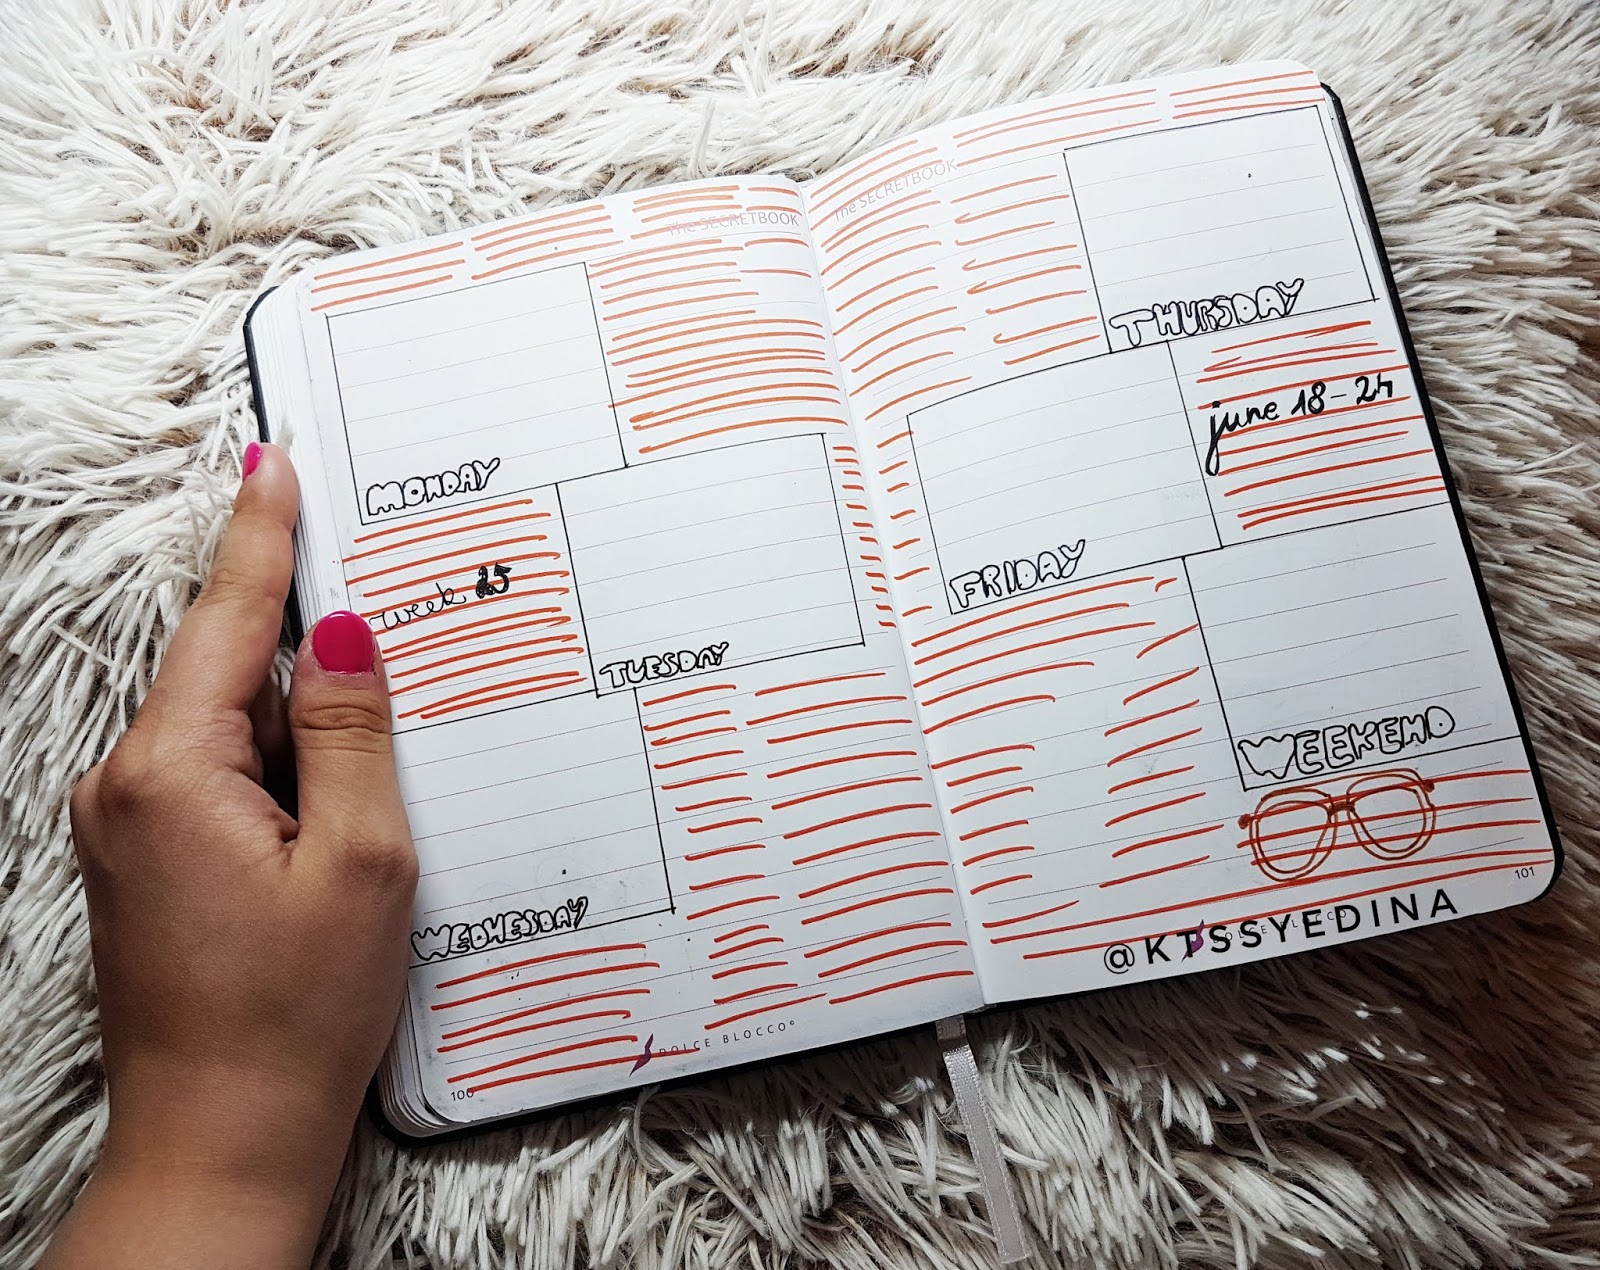 The SECRETBOOK
MONDAY
week 25
TUESDAY
WEDNESDAY
DOLCE BLOCCO®
100
The SECRETBOOK
THURSDAY
june 18-24
FRIDAY
WEEKEND
101
@KTSSYEDINA